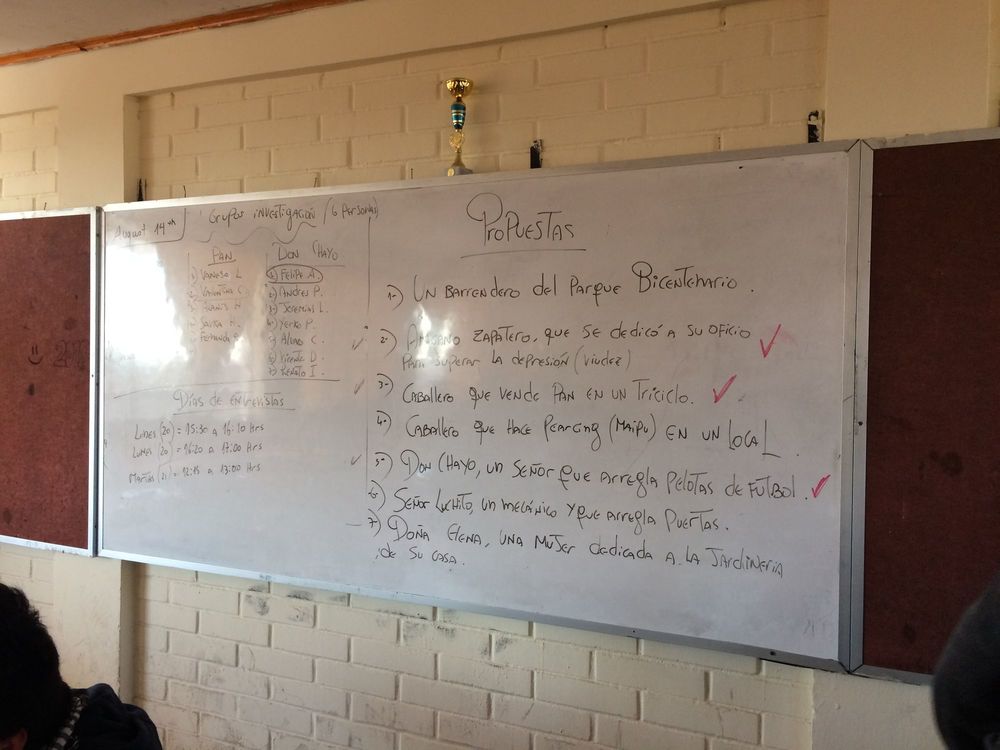 August 14th
Grupos investigación (6 Personas)
Pan
1) Vanesa L
2) Valentina C.
Fernanda
Don Chayo
1) Felipe A.
2) Andrés P.
3) Jeremías L.
4) Yerko P.
5) Alvaro C.
6) Vicente D.
7) Renato I.
Días de entrevistas
Lunes (20) = 15:30 a 16:10 Hrs
Lunes (20) = 16:20 a 17:00 Hrs
Martes (21) = 12:15 a 13:00 Hrs
Propuestas
1-) Un barrendero del Parque Bicentenario.
2-) Anciano zapatero, que se dedicó a su oficio
para superar la depresión (viudez)
3-) Caballero que vende pan en un triciclo.
4-) Caballero que hace pearcing (Maipú) en un local.
5-) Don Chayo, un señor que arregla pelotas de fútbol.
6-) Señor Luchito, un mecánico y que arregla puertas.
7-) Doña Elena, una mujer dedicada a la jardinería
de su casa.